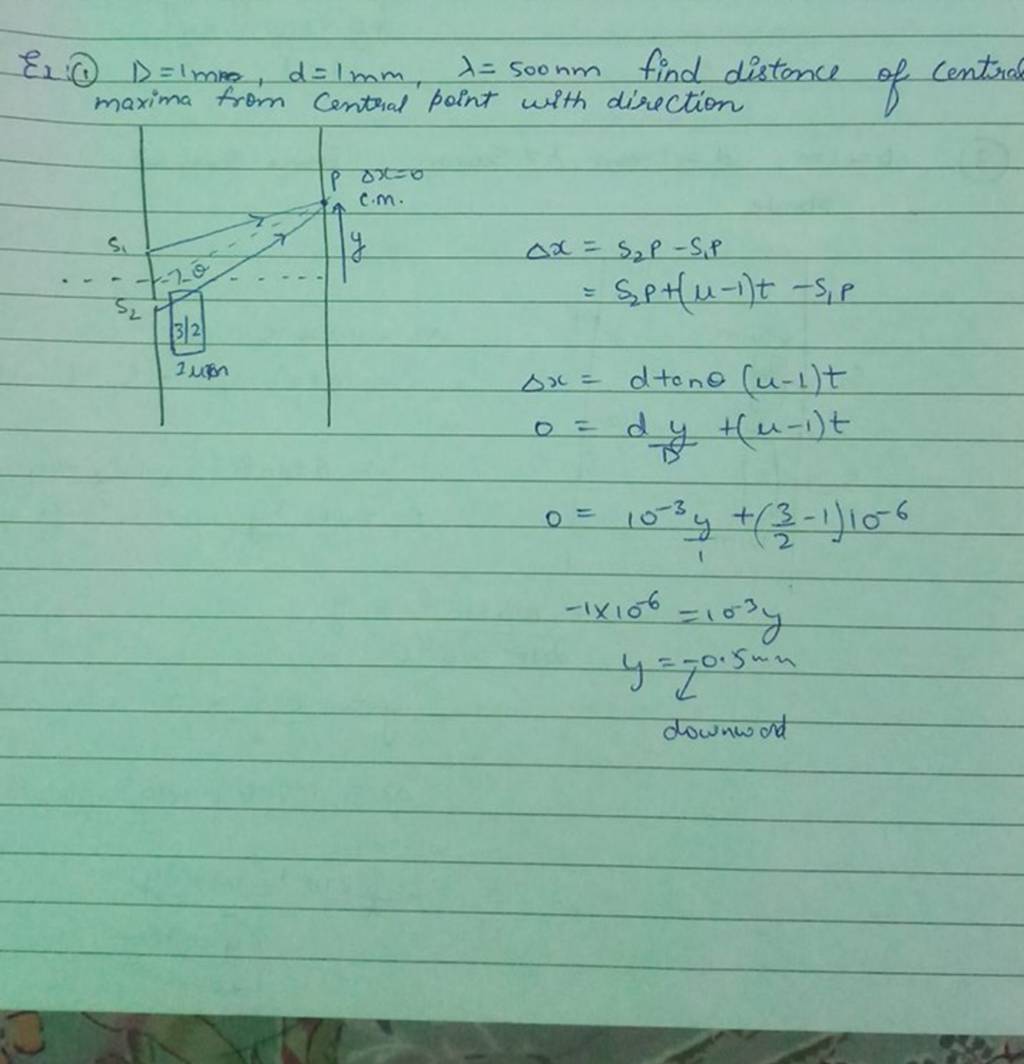 Ex:① D=1m, d=1mm, λ=500nm find distance of central
maxima from Central point with direction
P Δx=0
C.M.
S₁
y
θ
S₂
3/2
1μm
Δx = S₂P - S₁P
= S₂P+(μ-1)t - S₁P
Δx = dtanθ (μ-1)t
0 = d y/D +(μ-1)t
0 = 10⁻³ y/1 +(3/2 -1)10⁻⁶
-1×10⁻⁶ = 10⁻³y
y = -0.5mm
downword